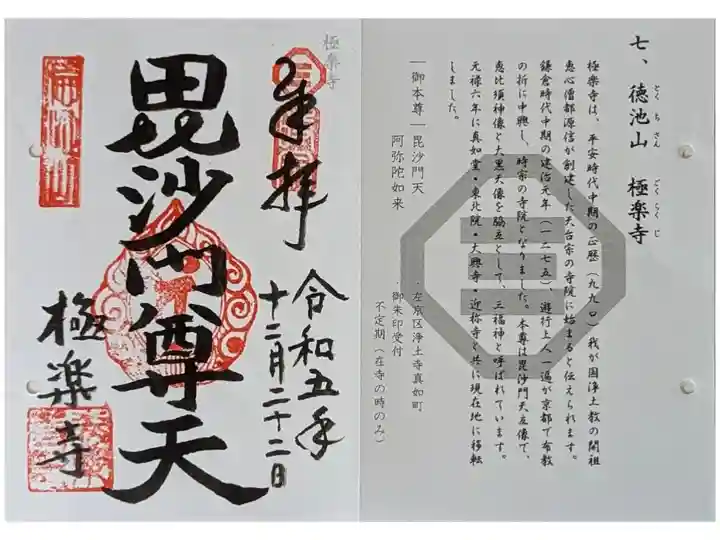 七、徳池山 極楽寺
とくちさん ごくらくじ
極楽寺は、平安時代中期の正暦(九九〇)我が国浄土教の開祖
恵心僧都源信が創建した天台宗の寺院に始まると伝えられます。
鎌倉時代中期の建治元年(一二七五)、遊行上人一遍が京都で布教
の折に中興し、時宗の寺院となりました。本尊は毘沙門天立像で、
恵比須神像と大黒天像を脇立として、三福神と呼ばれています。
元禄六年に真如堂・東北院・大興寺・迎称寺と共に現在地に移転
しました。
―御本尊― 毘沙門天
阿弥陀如来
・左京区浄土寺真如町
・御朱印受付
不定期(在寺の時のみ)
極楽寺
奉拝
令和五年
十二月二十二日
毘沙門尊天
極楽寺